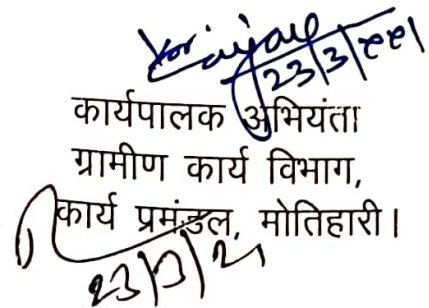 23/3/2021
कार्यपालक अभियंता
ग्रामीण कार्य विभाग,
कार्य प्रमंडल, मोतिहारी।
23/3/21